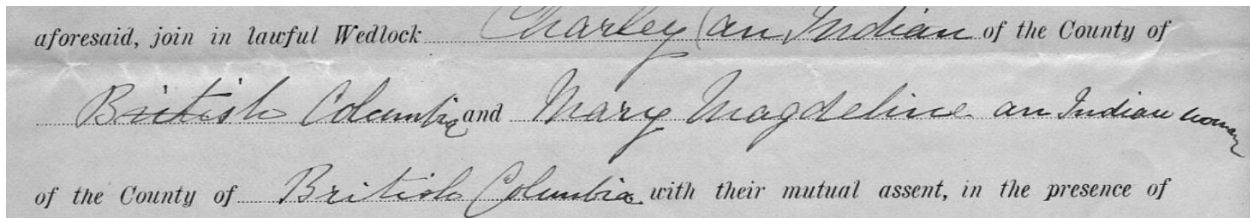 aforesaid, join in lawful Wedlock Charley (an Indian of the County of
British Columbia and Mary Magdeline an Indian woman
of the County of British Columbia with their mutual assent, in the presence of